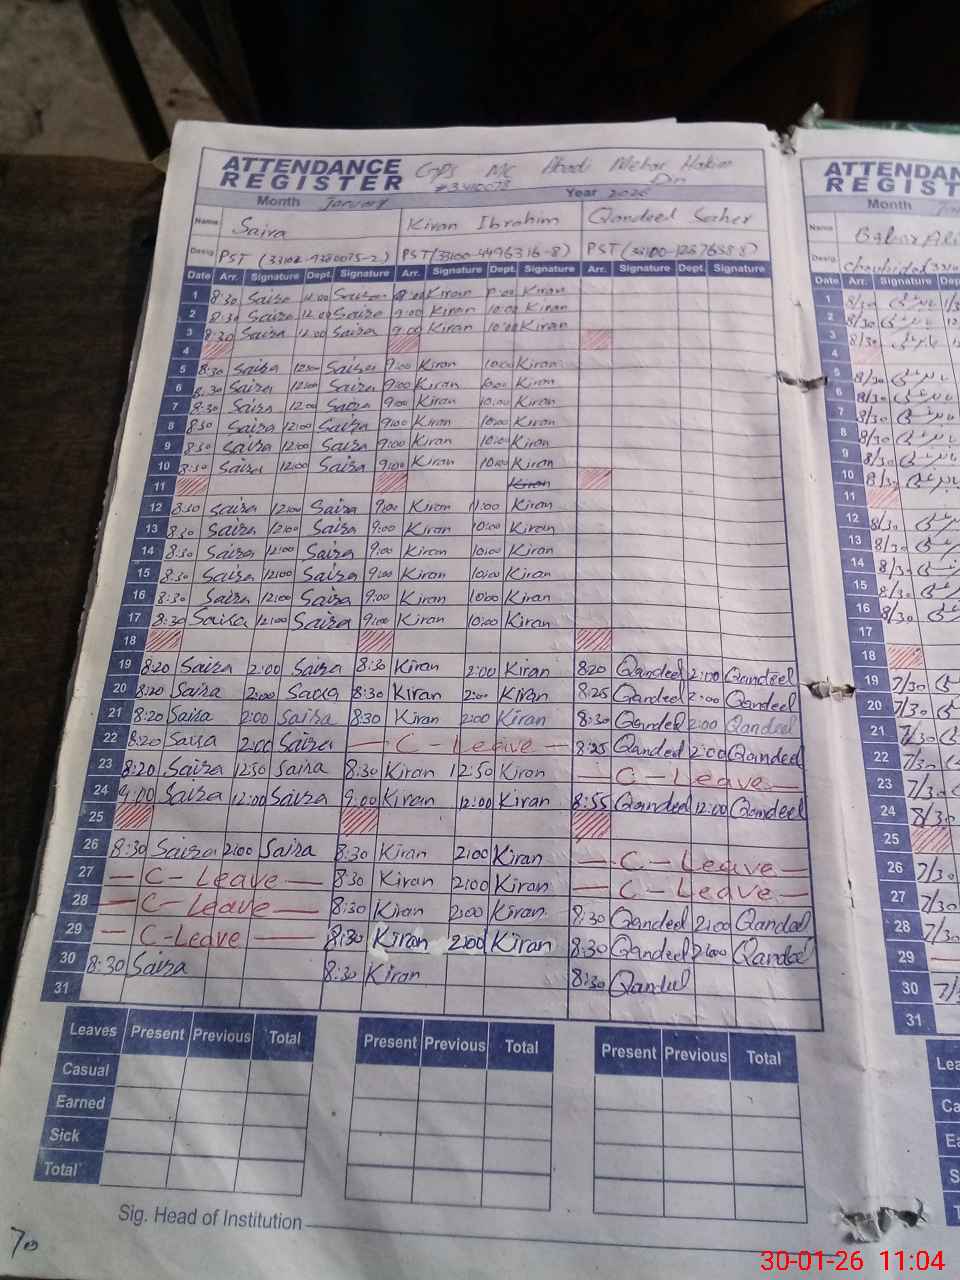 ATTENDANCE REGISTER GPS MC Abadi Mehar Hakim Din
Month January Year 2026
Name Saira Kiran Ibrahim Qandeel Saher
Desig. PST PST (33100-4496316-8) PST
Date Arr. Signature Dept. Signature Arr. Signature Dept. Signature Arr. Signature Dept. Signature
1 8:30 Saira Saira Kiran Kiran
2 8:30 Saira 12.00 Saira 9:00 Kiran 10:00 Kiran
3 8:30 Saira 12.00 Saira 9:00 Kiran 10:00 Kiran
4
5 8:30 Saira 12:00 Saira 9:00 Kiran 10:00 Kiran
6 8:30 Saira 12:00 Saira 9:00 Kiran 10:00 Kiran
7 8:30 Saira 12:00 Saira 9:00 Kiran 10:00 Kiran
8 8:30 Saira 12:00 Saira 9:00 Kiran 10:00 Kiran
9 8:30 Saira 12:00 Saira 9:00 Kiran 10:00 Kiran
10 8:30 Saira 12:00 Saira 9:00 Kiran 10:00 Kiran
11 Kiran
12 8:30 Saira 12:00 Saira 9:00 Kiran 11:00 Kiran
13 8:30 Saira 12:00 Saira 9:00 Kiran 10:00 Kiran
14 8:30 Saira 12:00 Saira 9:00 Kiran 10:00 Kiran
15 8:30 Saira 12:00 Saira 9:00 Kiran 10:00 Kiran
16 8:30 Saira 12:00 Saira 9:00 Kiran 10:00 Kiran
17 8:30 Saira 12:00 Saira 9:00 Kiran 10:00 Kiran
18
19 8:20 Saira 2:00 Saira 8:30 Kiran 2:00 Kiran 8:20 Qandeel 2:00 Qandeel
20 8:20 Saira 2:00 Saira 8:30 Kiran 2:00 Kiran 8:25 Qandeel 2:00 Qandeel
21 8:20 Saira 2:00 Saira 8:30 Kiran 2:00 Kiran 8:30 Qandeel 2:00 Qandeel
22 8:20 Saira 2:00 Saira — C - Leave — 8:25 Qandeel 2:00 Qandeel
23 8:20 Saira 12:50 Saira 8:30 Kiran 12:50 Kiran — C - Leave —
24 9:00 Saira 12:00 Saira 9:00 Kiran 12:00 Kiran 8:55 Qandeel 12:00 Qandeel
25
26 8:30 Saira 2:00 Saira 8:30 Kiran 2:00 Kiran — C - Leave —
27 — C - Leave — 8:30 Kiran 2:00 Kiran — C - Leave —
28 — C - Leave — 8:30 Kiran 2:00 Kiran 8:30 Qandeel 2:00 Qandeel
29 — C-Leave — 8:30 Kiran 2:00 Kiran 8:30 Qandeel 2:00 Qandeel
30 8:30 Saira 8:30 Kiran 8:30 Qandeel
31
Leaves Present Previous Total Present Previous Total Present Previous Total
Casual
Earned
Sick
Total
Sig. Head of Institution
70
Month
Name Babar Ali
Desig.
Date Arr. Signature Dept.
1 8/30
2 8/30
3 8/30
4
5 8/30
6 8/30
7 8/30
8 8/30
9 8/30
10 8/30
11
12 8/30
13 8/30
14 8/30
15 8/30
16 8/30
17
18
19 7/30
20 7/30
21 7/30
22 7/30
23 7/30
24 8/30
25
26 7/30
27 7/30
28 7/30
29
30
31
30-01-26 11:04